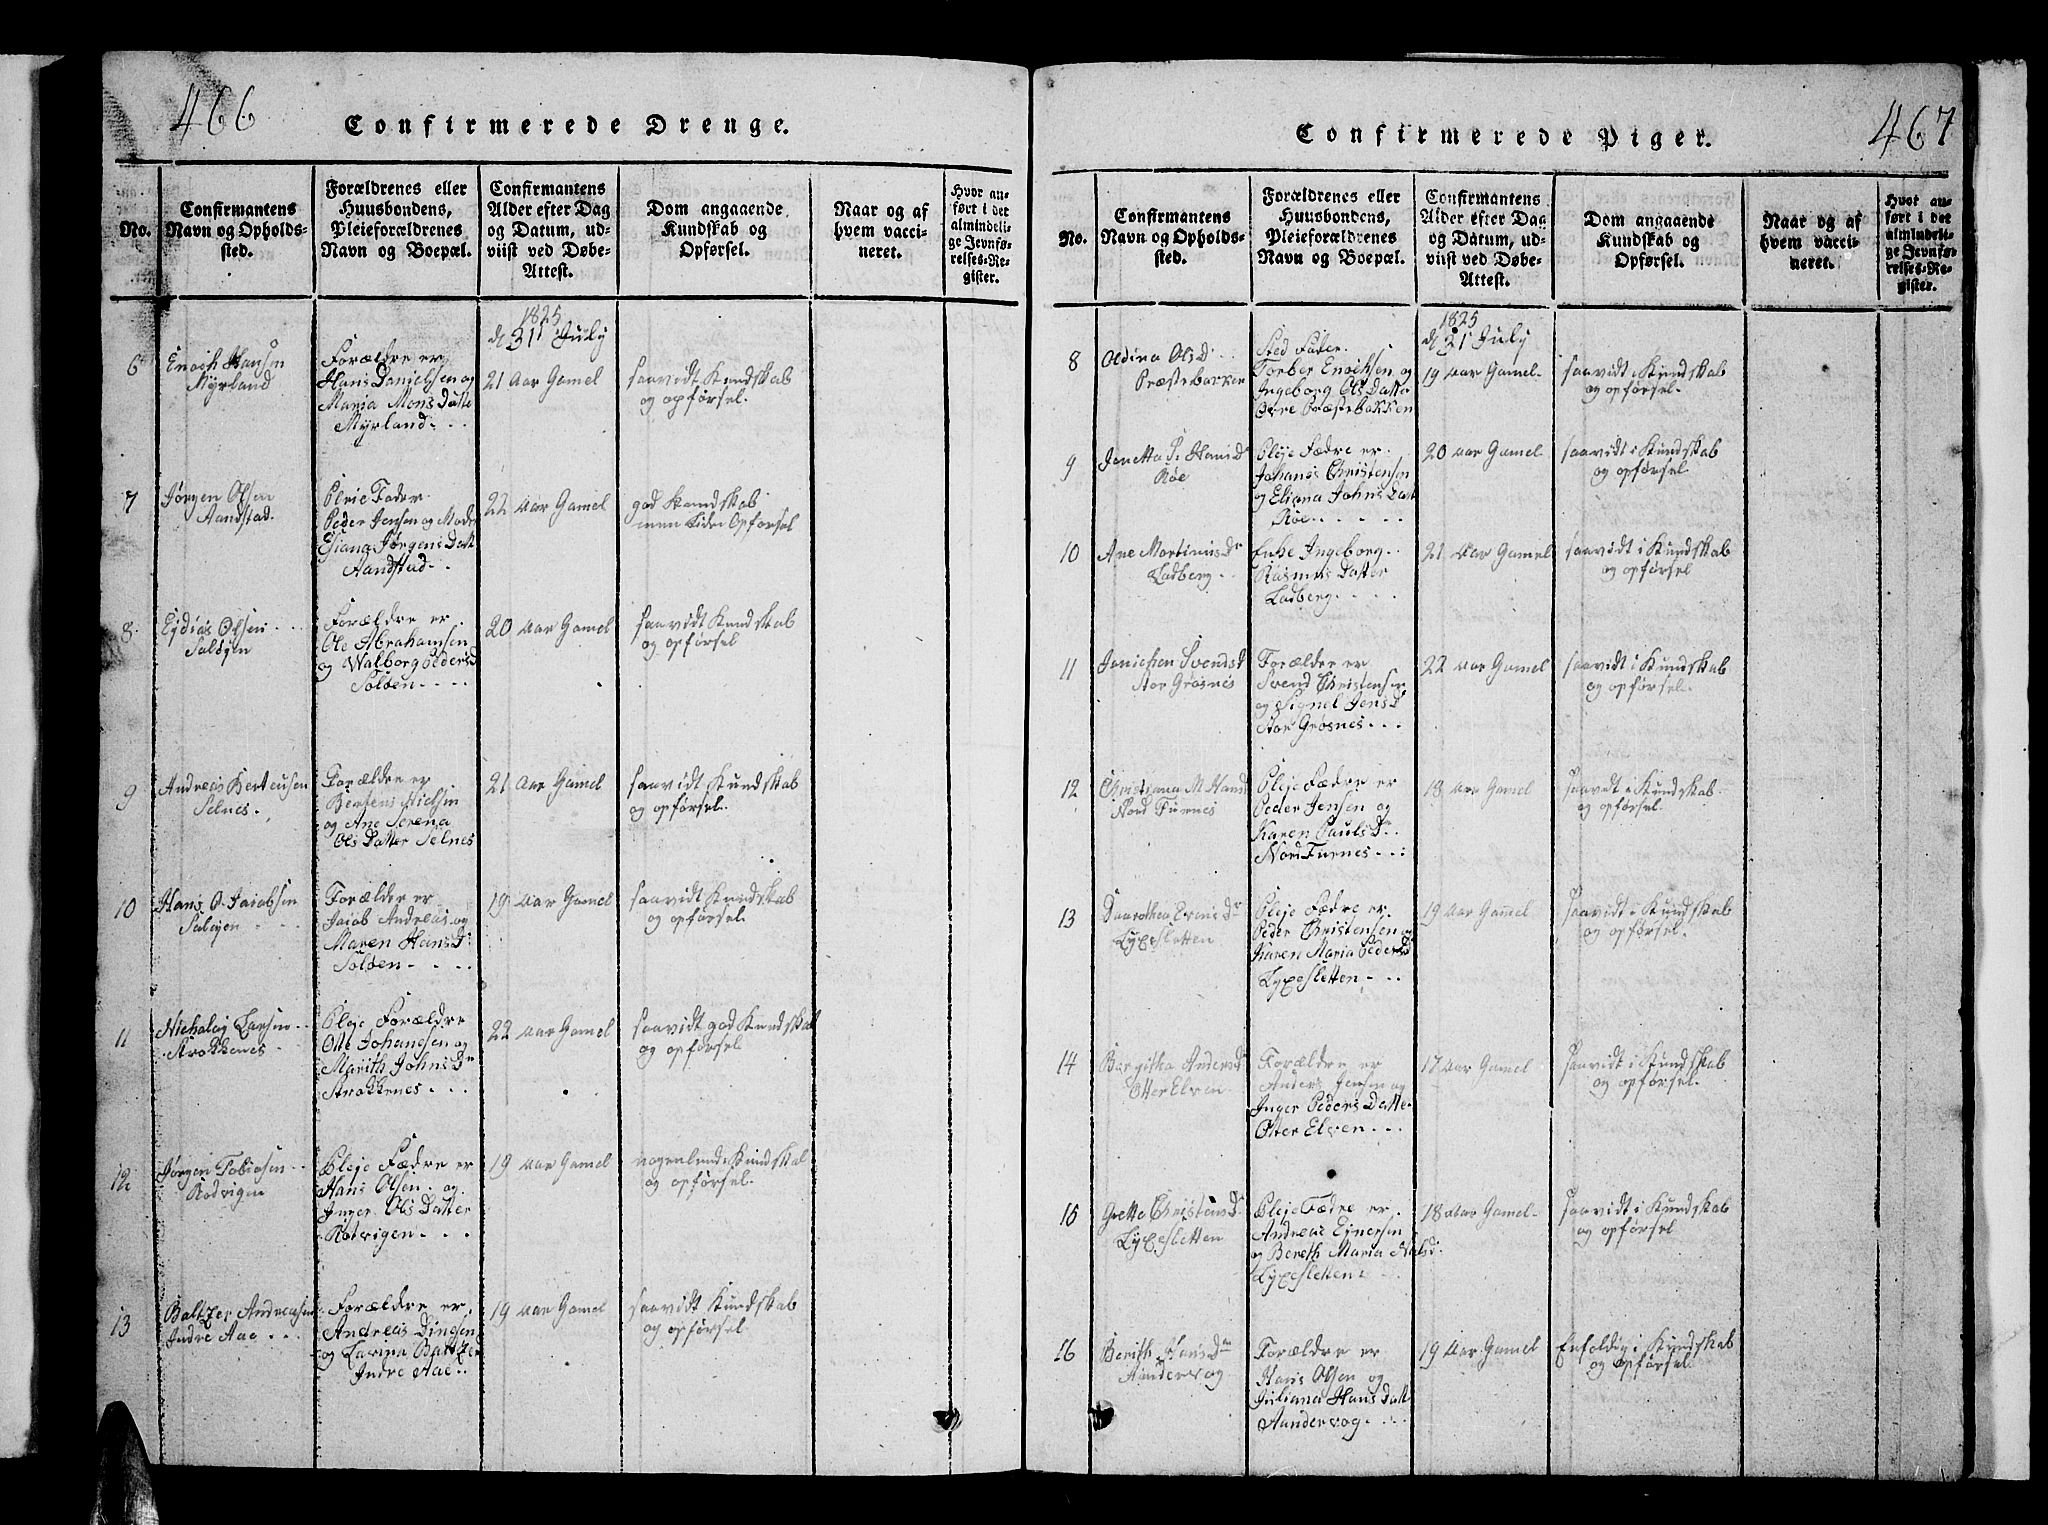 466
Confirmerede Drenge.
No.
Confirmantens
Navn og Opholds-
sted.
Forældrenes eller
Huusbondens,
Pleieforældrenes
Navn og Boepæl.
Confirmantens
Alder efter Dag
og Datum, ud-
viist ved Døbe-
Attest.
Dom angaaende
Kundskab og
Opførsel.
Naar og af
hvem vacci-
neret.
Hvor an-
ført i det
almindeli-
ge Jevnfø-
relses-Re-
gister.
1825
d 31 July
6
Enoch Hansen
Myrland
Forældre er
Hans Danielsen og
Maria Mons Datte
Myrland
21 Aar Gamel
saavidt Kundskab
og opførsel.
7
Jørgen Olsen
Aandstad.
Pleie Fader
Peder Jensen og Moder
Jørgens Datt
Aandstad
22 Aar Gamel
god Kundskab
men Opførsel
8
Olsen
Forældre er
Ole Abrahamsen
og Walborg Peders d
20 Aar Gamel
saavidt Kundskab
og opførsel
9
Andreas Bertensen
Selnes
Forældre er
Bertens Nielsen
og Ane Serena
Ols Datter Selnes
21 Aar Gamel
saavidt Kundskab
og opførsel.
10
Hans O Jacobsen
Forældre er
Jacob Andreas og
Maren Hans D
19 Aar Gamel
saavidt Kundskab
og opførsel.
11
Nicholay Larsen
Strokkenes
Pleje Forældre
Otte Johansen og
Marith Johns Dr
Strokkenes
22 Aar Gamel
saavidt god Kundskab
og opførsel
12
Jørgen Tobiasen
Rodvigen
Pleje Fædre er
Hans Olsen og
Inger Ols Datter
Rotvigen
19 Aar Gamel
nogenlunde Kundskab
og opførsel.
13
Baltzer Andreasen
Indre Aae
Forældre er
Andreas Dinesen
og Lavina Baltzer
Indre Aae
19 Aar Gamel
saavidt Kundskab
og opførsel
467
Confirmerede Piger.
No.
Confirmantens
Navn og Opholds-
sted.
Forældrenes eller
Huusbondens,
Pleieforældrenes
Navn og Boepæl.
Confirmantens
Alder efter Dag
og Datum, ud-
viist ved Døbe-
Attest.
Dom angaaende
Kundskab og
Opførsel.
Naar og af
hvem vacci-
neret.
Hvor an-
ført i det
almindeli-
ge Jevnfø-
relses-Re-
gister.
1825
d 31 July
8
Oldina Ols D
Præstebakken
Sted Fader
Torber Enochsen og
Ingeborg Ols Datter
Øvre Præstebakken
19 Aar Gamel
saavidt i Kundskab
og opførsel.
9
Jenetta P. Hans D
Røe
Pleje Fædre er
Johans Christensen
og Eliana Johns Datt
Røe
20 Aar Gamel
saavidt i Kundskab
og opførsel
10
Ane Martinus Dr
Ladberg
Enke Ingeborg
Rasmus Datter
Ladberg
21 Aar Gamel
saavidt i Kundskab
og opførsel
11
Jenichen Svends d
Stor Grøsnes
Forældre er
Svend Christensen
og Signel Jens D
Stor Grøsnes
22 Aar Gamel
saavidt i Kundskab
og opførsel.
12
Christiana M Hans d
Nord Furnes
Pleje Fædre er
Peder Jensen og
Karen Pauls Dr
Nord Furnes
18 Aar Gamel
saavidt i Kundskab
og opførsel.
13
Daarothea Evens Dr
Lyxesletten
Pleje Fædre er
Peder Christensen og
Karen Maria Peders D
Lyxesletten
19 Aar Gammel
saavidt i Kundskab
og opførsel.
14
Bergitha Anders D
Otter Elven
Forældre er
Anders Jensen og
Inger Peders Datte
Otter Elven
17 Aar Gamel
saavidt i Kundskab
og opførsel.
15
Grette Christens D
Lyxesletten
Pleje Fædre er
Andreas Ejnersen
og Bereth Maria Niels d
Lyxesletten
18 Aar Gamel
saavidt i Kundskab
og opførsel
16
Berith Hans Dr
Aandervog
Forældre er
Hans Olsen og
Juliana Hans Datt
Aandervog
19 Aar Gamel
Enfoldig i Kundskab
og opførsel